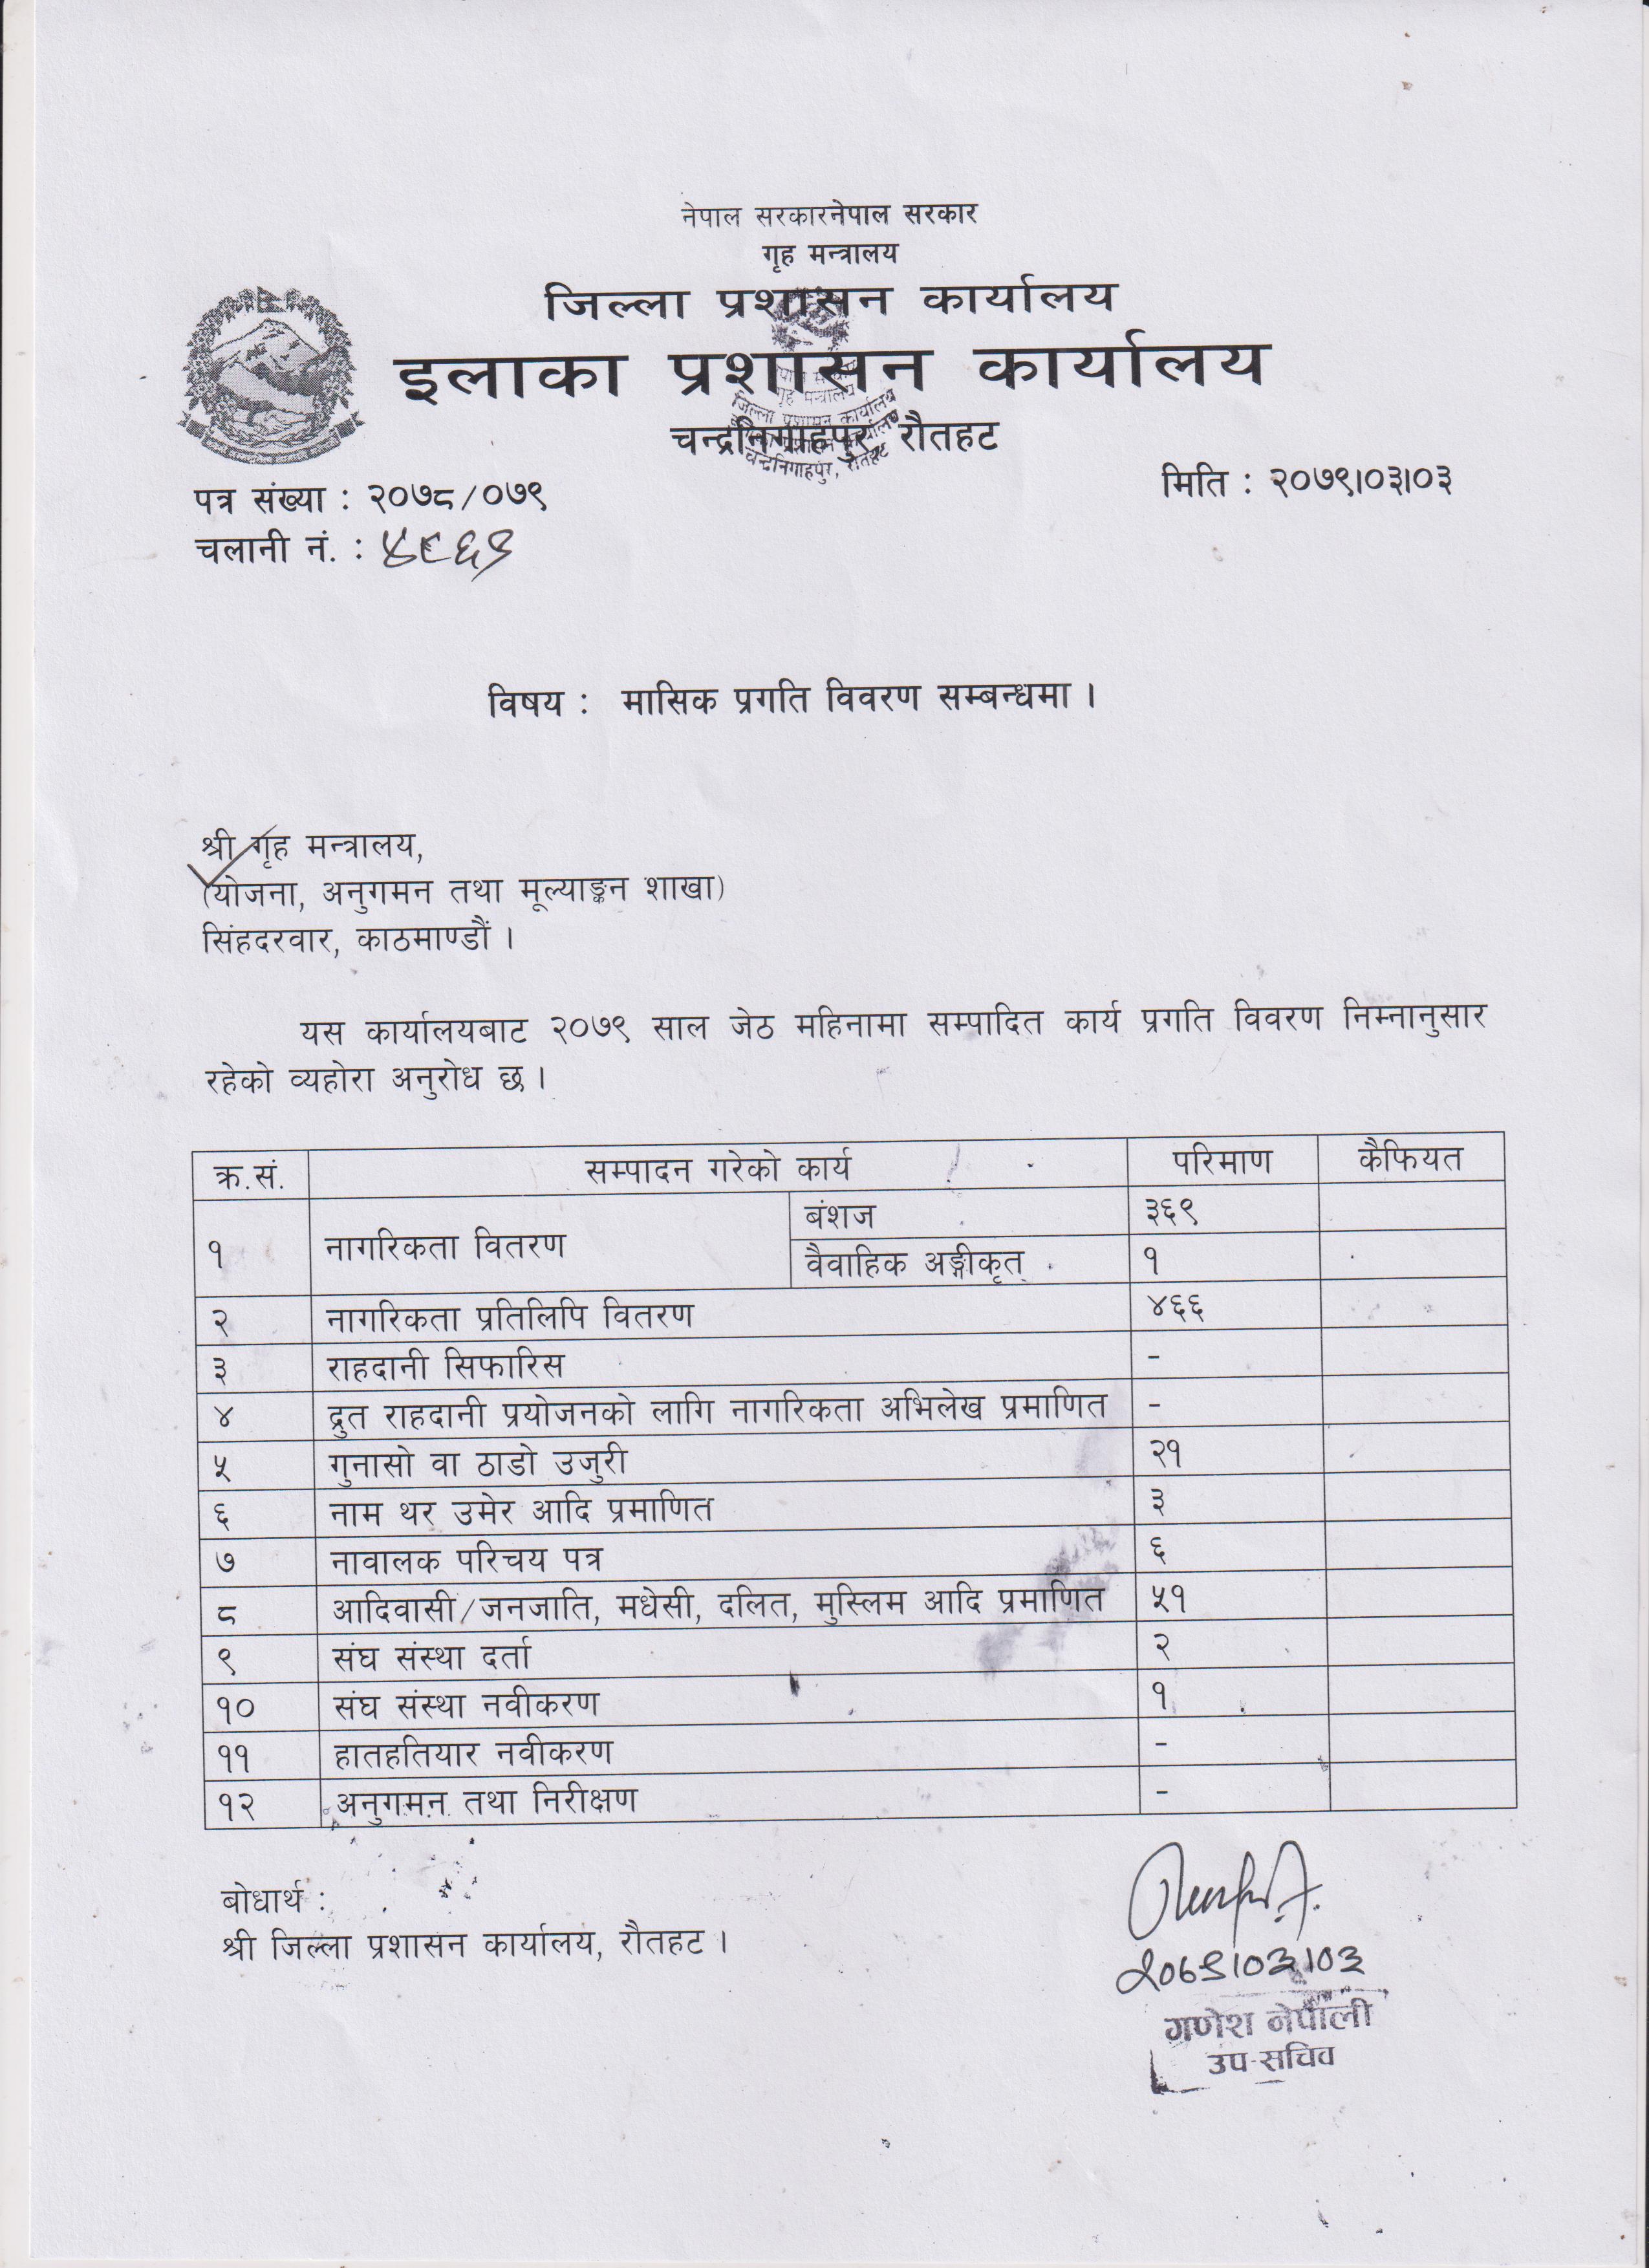 नेपाल सरकारनेपाल सरकार
गृह मन्त्रालय
जिल्ला प्रशासन कार्यालय
इलाका प्रशासन कार्यालय
चन्द्रनिगाहपुर, रौतहट
गृह मन्त्रालय
जिल्ला प्रशासन कार्यालय
चन्द्रनिगाहपुर, रौतहट
पत्र संख्या : २०७८/०७९
मिति : २०७९।०३।०३
चलानी नं. :
विषय : मासिक प्रगति विवरण सम्बन्धमा ।
श्री गृह मन्त्रालय,
(योजना, अनुगमन तथा मूल्याङ्कन शाखा)
सिंहदरवार, काठमाण्डौं ।
यस कार्यालयबाट २०७९ साल जेठ महिनामा सम्पादित कार्य प्रगति विवरण निम्नानुसार
रहेको व्यहोरा अनुरोध छ ।
क्र.सं. सम्पादन गरेको कार्य परिमाण कैफियत
१ नागरिकता वितरण बंशज ३६९
वैवाहिक अङ्गीकृत १
२ नागरिकता प्रतिलिपि वितरण ४६६
३ राहदानी सिफारिस -
४ द्रुत राहदानी प्रयोजनको लागि नागरिकता अभिलेख प्रमाणित -
५ गुनासो वा ठाडो उजुरी २१
६ नाम थर उमेर आदि प्रमाणित ३
७ नावालक परिचय पत्र ६
८ आदिवासी/जनजाति, मधेसी, दलित, मुस्लिम आदि प्रमाणित ५१
९ संघ संस्था दर्ता २
१० संघ संस्था नवीकरण १
११ हातहतियार नवीकरण -
१२ अनुगमन तथा निरीक्षण -
बोधार्थ :
श्री जिल्ला प्रशासन कार्यालय, रौतहट ।
२०७९।०३।०३
गणेश नेपाली
उप-सचिव